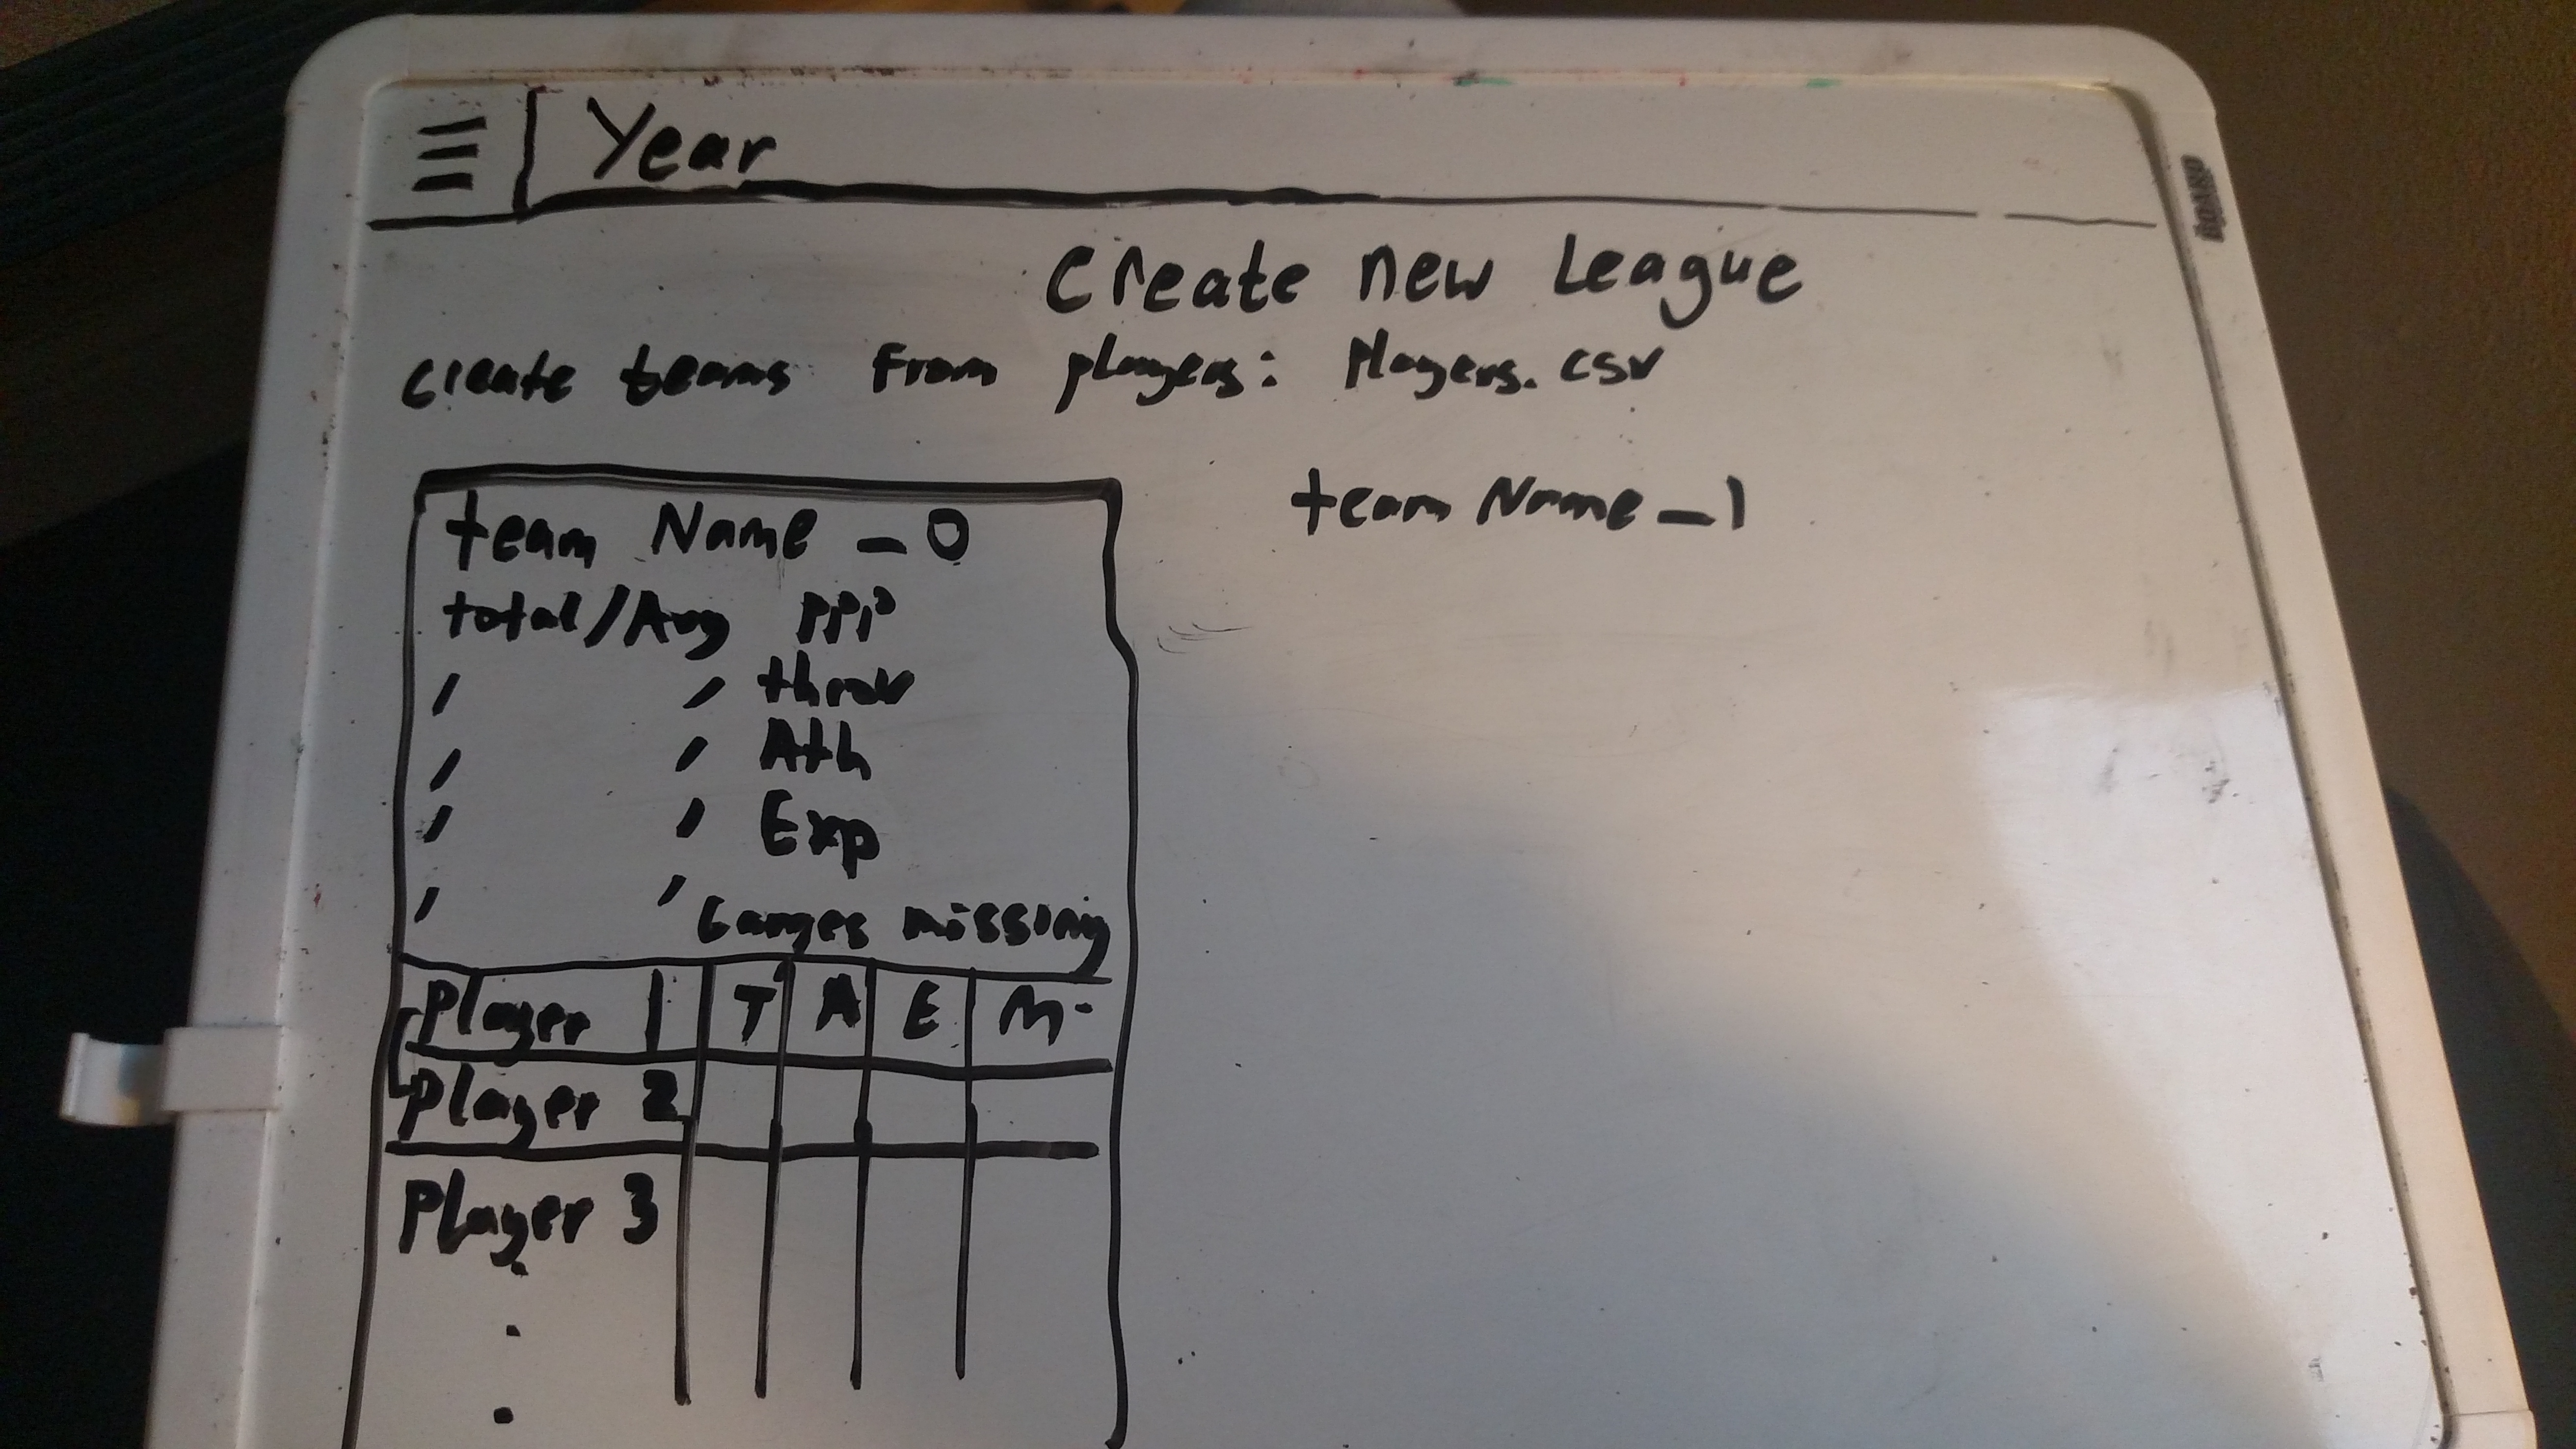 Year
Create New League
Create teams From players: Players.csv
team Name - 0
total/Avg PPP
" " throw
" " Ath
" " Exp
" " Games missing
Player 1 T A E M
Player 2
Player 3
team Name - 1